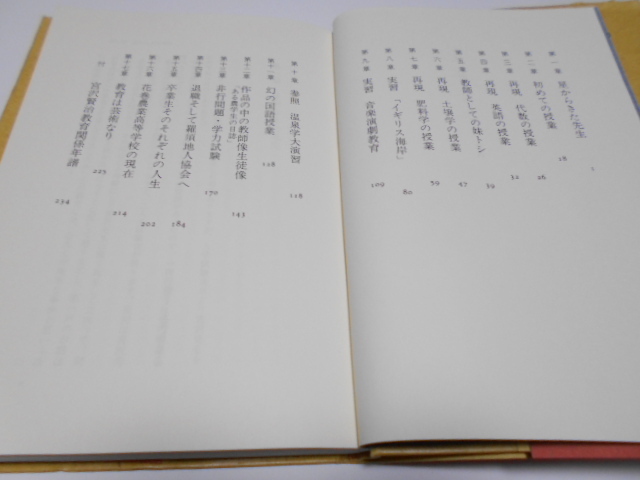 第一章 星からきた先生 18
第二章 初めての授業 26
第三章 再現 代数の授業 32
第四章 再現 英語の授業 39
第五章 教師としての妹トシ 47
第六章 再現 土壌学の授業 59
第七章 再現 肥料学の授業
第八章 実習 「イギリス海岸」 80
第九章 実習 音楽演劇教育 109
第十章 参照 温泉学大演習 118
第十一章 幻の国語授業 128
第十二章 作品の中の教師像生徒像
「ある農学生の日誌」 143
第十三章 非行問題・学力試験
第十四章 退職そして羅須地人協会へ 170
第十五章 卒業生そのそれぞれの人生 184
第十六章 花巻農業高等学校の現在 202
第十七章 教育は芸術なり 214
225
宮沢賢治教育関係年譜 234